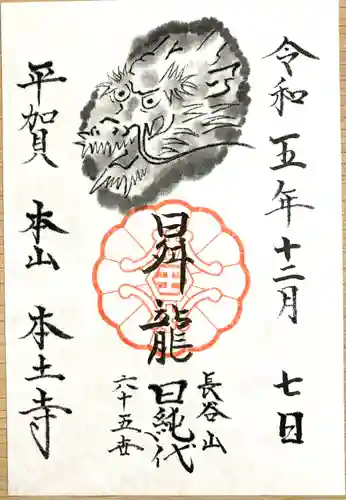 令和五年十二月七日
昇龍
長谷山
日純代
六十五世
平賀 本山 本土寺